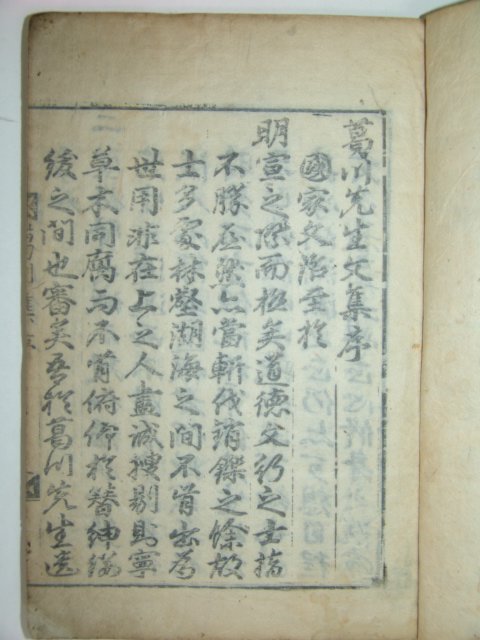 葛川先生文集序
國家文治至於
明宣之際而極矣道德文行之士指
不勝屈然亦當斬伐銷鑠之餘故
士多處林壑湖海之間不肯出爲
世用非在上之人盡誠搜剔則寧
草木同腐而不肯俯仰於簪紳綬
緩之間也審矣吾於葛川先生遺